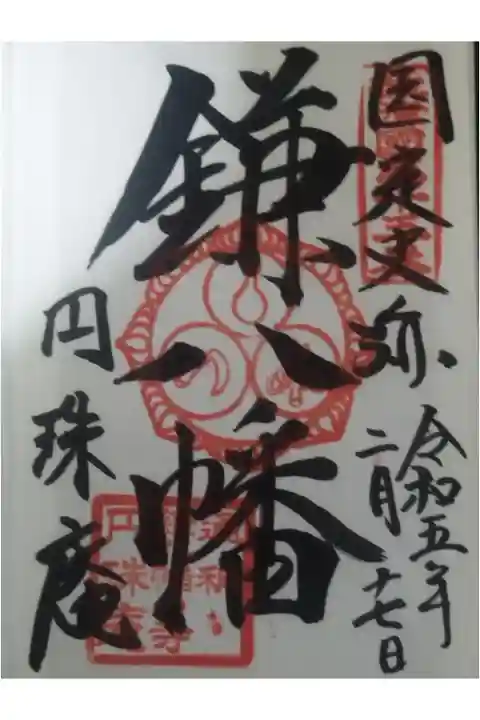 国定史跡
令和五年
二月十七日
鎌八幡
円珠庵